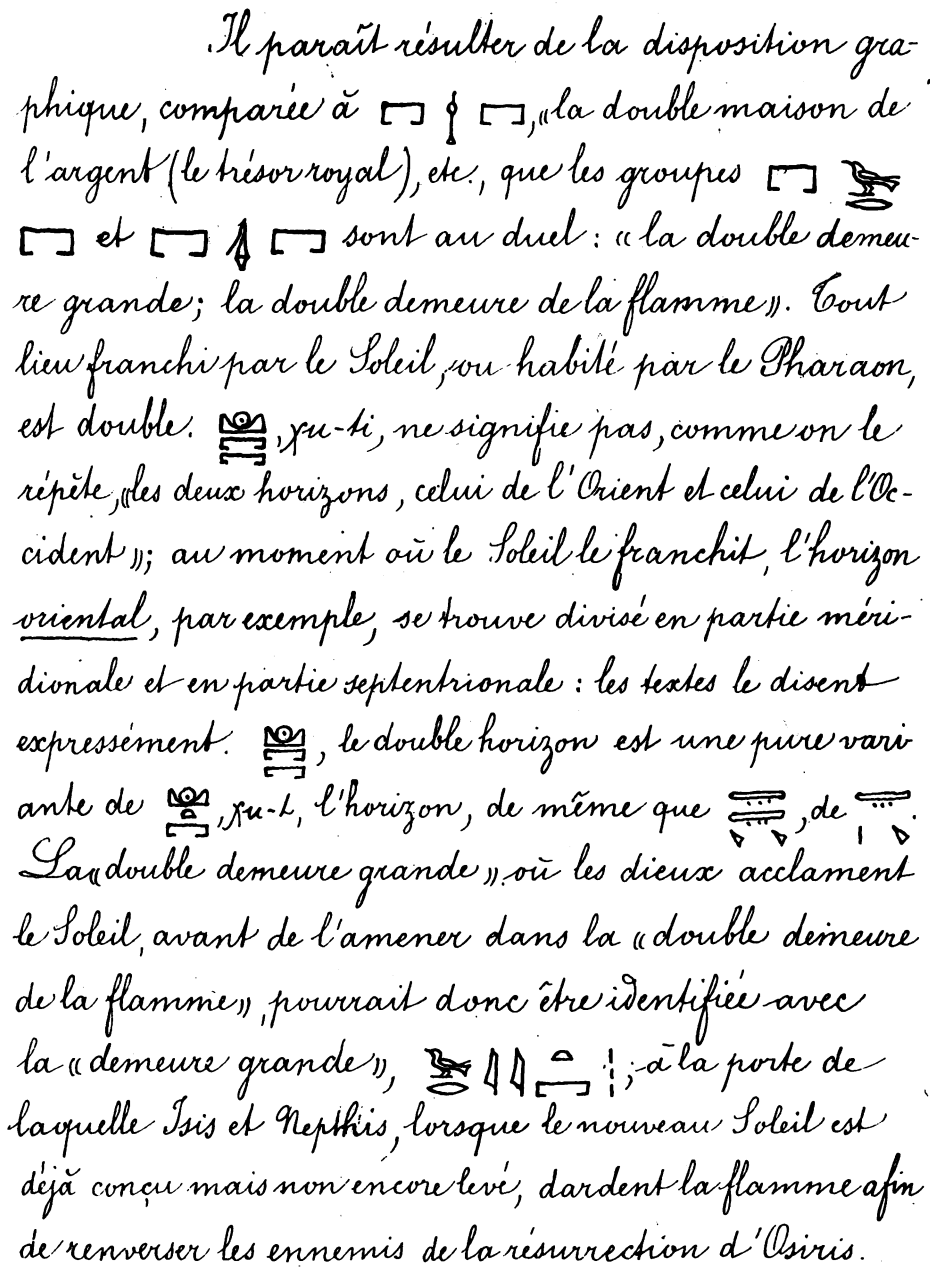 Il paraît résulter de la disposition gra-
phique, comparée à 𓉐 𓌉 𓉐, « la double maison de
l'argent (le trésor royal), etc., que les groupes 𓉐 𓅨𓂋
𓉐 et 𓉐 𓉐 sont au duel : « la double demeu-
re grande; la double demeure de la flamme ». Tout
lieu franchi par le Soleil, ou habité par le Pharaon,
est double. , χu-ti, ne signifie pas, comme on le
répète, « les deux horizons, celui de l'Orient et celui de l'Oc-
cident »; au moment où le Soleil le franchit, l'horizon
oriental, par exemple, se trouve divisé en partie méri-
dionale et en partie septentrionale : les textes le disent
expressément. , le double horizon est une pure vari-
ante de , χu-t, l'horizon, de même que , de .
La « double demeure grande », où les dieux acclament
le Soleil, avant de l'amener dans la « double demeure
de la flamme », pourrait donc être identifiée avec
la « demeure grande », 𓅨𓂋𓇋𓇋𓏏𓉐 ; à la porte de
laquelle Isis et Nepthis, lorsque le nouveau Soleil est
déjà conçu mais non encore levé, dardent la flamme afin
de renverser les ennemis de la résurrection d'Osiris.